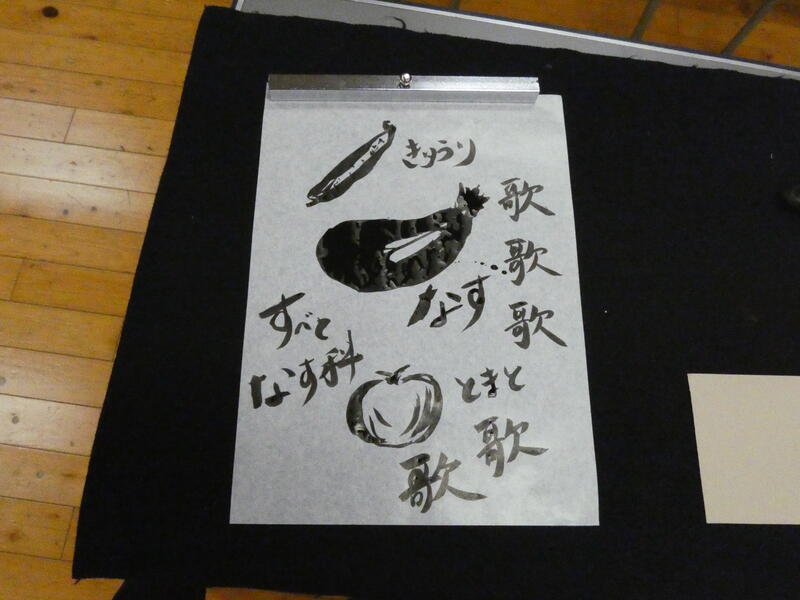 きゅうり
歌
歌
なす
歌
すべて
なす科
とまと
歌
歌